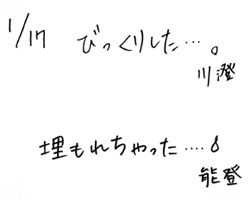 1/17 びっくりした…。
川澄
埋もれちゃった…。
能登